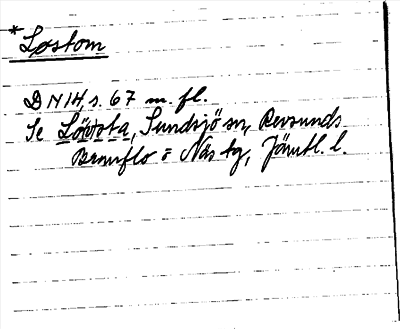 *Løstom
DN14, s. 67 m. fl.
Se Lövsta, Sundsjö sn, Revsunds
Brunflo o Näs tg, Jämtl. l.